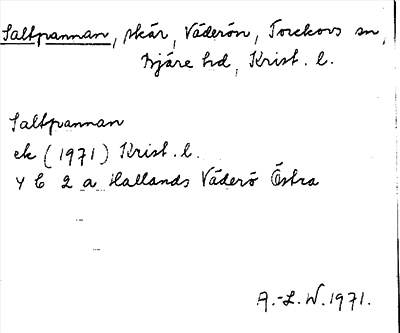 Saltpannan, skär, Väderön, Torekovs sn,
Bjäre hd, Krist. l.
Saltpannan
ek (1971) Krist. l.
4 C 2 a Hallands Väderö Östra
A.-L. W. 1971.